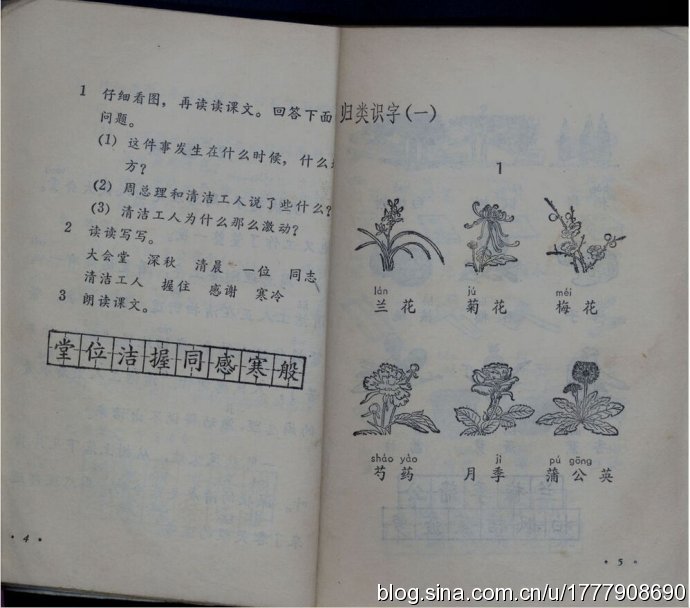 1 仔细看图，再读读课文。回答下面
问题。
(1) 这件事发生在什么时候，什么
方？
(2) 周总理和清洁工人说了些什么？
(3) 清洁工人为什么那么激动？
2 读读写写。
大会堂 深秋 清晨 一位 同志
清洁工人 握住 感谢 寒冷
3 朗读课文。
堂位洁握同感寒般
·4·
归类识字(一)
1
lán jú méi
兰花 菊花 梅花
sháo yào jì pú gōng
芍药 月季 蒲公英
·5·
blog.sina.com.cn/u/1777908690